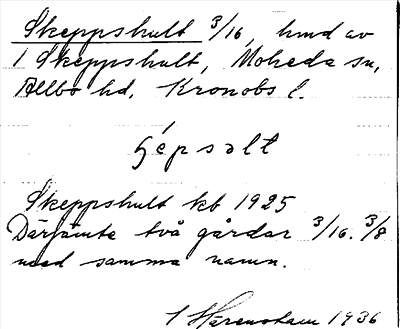 Skeppshult 3/16, hmd av
1 Skeppshult, Moheda sn,
Allbo hd, Kronobs l.
Skeppshult kb 1925
Därjämte två gårdar 3/16. 3/8
med samma namn.
1936